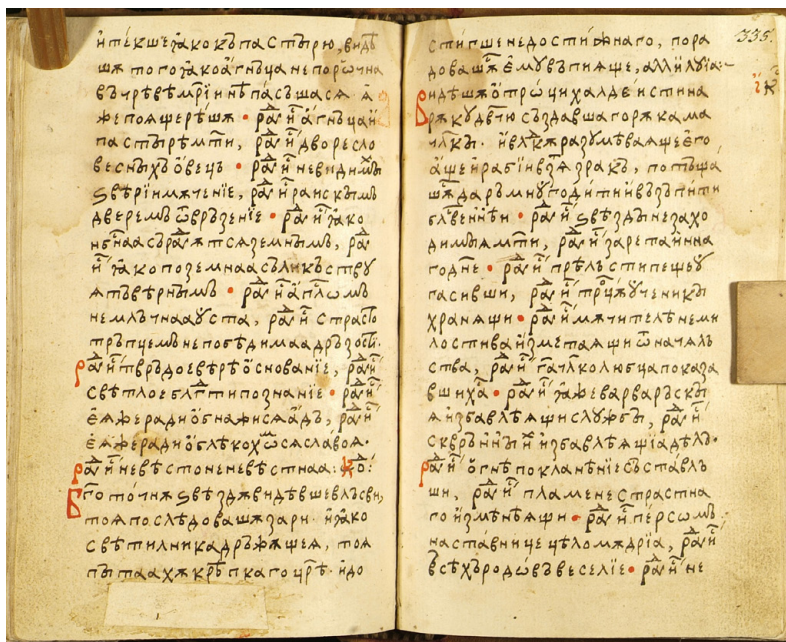 и҆текшеꙗко къпастырю, видѣ
шѫ тогоꙗкоа҆гньца непорѡчна
въчрѣвѣ мр҃іи нъ пасъшасѧ
жепоѧщерѣшѫ • раⷣ и҆ а҆гньцаи
пастырѣ мт҃и, раⷣ дворесло
весныхъ ѻ҆вець • раⷣ и҆ невидимыⷯ
ѕвѣріи мѫченїе, раⷣ и҆ раискымъ
дверемъ ѿвръзенїе • раⷣ и҆ ꙗко
нб҃наа съраⷣꙋѧтсѧ земнымъ, раⷣ
и҆ ꙗко поземнаа съликъствꙋ
ѧтъ вѣрнымъ • раⷣ и҆ а҆пⷭ҇лѡмъ
немлъчнаа ꙋста, раⷣ и҆ страсто
тръпцемь непобѣдимаа дръзость.
раⷣ и҆ твръдое вѣрѣ ѻ҆снованїе, раⷣ и҆
свѣтлое бл҃гⷣти познанїе • раⷣ и҆
е҆ѧже ради ѻ҆бнажисѧ а҆дъ, раⷣ и҆
е҆ѧже ради ѻ҆блѣкохѡⷨсѧ славоѧ.
раⷣ и҆ невѣсто неневѣстнаа: коⷣ:
Бг҃оточнѫ ѕвѣздѫ видѣвше влъсви,
тоѧ послѣдовашѫ зари. и҆ ꙗко
свѣтилника дръжѧщеѧ, тоѧ
пытаахѫ крѣпкаго цр҃ѣ. и҆до
335.
стигше недостижнаго, пора
довашѫⷭ е҆мꙋ въпиѧще, аллилꙋїа:~
Видѣшѫ ѻ҆троци халдеистіи на
рѫкꙋ дв҃тю създавшаго рѫкама
чл҃кы. и҆ влⷣкѫ разꙋмѣваѧще е҆го
а҆ще и҆ рабіи въꙁѧ зракъ, потъща
шѫⷭ даръми ꙋгодити и҆ въꙁъпити
блⷭ҇веннѣи • раⷣ и҆ ѕвѣзды незахо
димыѧ мт҃и, раⷣ и҆ заре таинна
го дн҃е • раⷣ и҆ прѣлъсти пещь ꙋ
гасивши, раⷣ и҆ трⷪ҇цѫ ꙋченикы
хранѧщи • раⷣ и҆ мѫчителѣ неми
лостива и҆зметаѧщи ѿ началъ
ства, раⷣ и҆ г҃а чл҃колюбца показа
вши ха҃ • раⷣ и҆ ꙗже варварскы
ѧ и҆збавлѣѧщи слꙋжбы, раⷣ и҆
скврънныⷯ и҆ избавлѣѧщїа дѣлъ.
раⷣ и҆ ѻ҆гнѣ покланѣнїе съставль
ши, раⷣ и҆ пламене страстна
го и҆змѣнѣѧщи • раⷣ и҆ персѡмъ
наставнице цѣломѫдрїа, раⷣ и҆
всѣхъ родѡвъ веселїе • раⷣ и҆ не